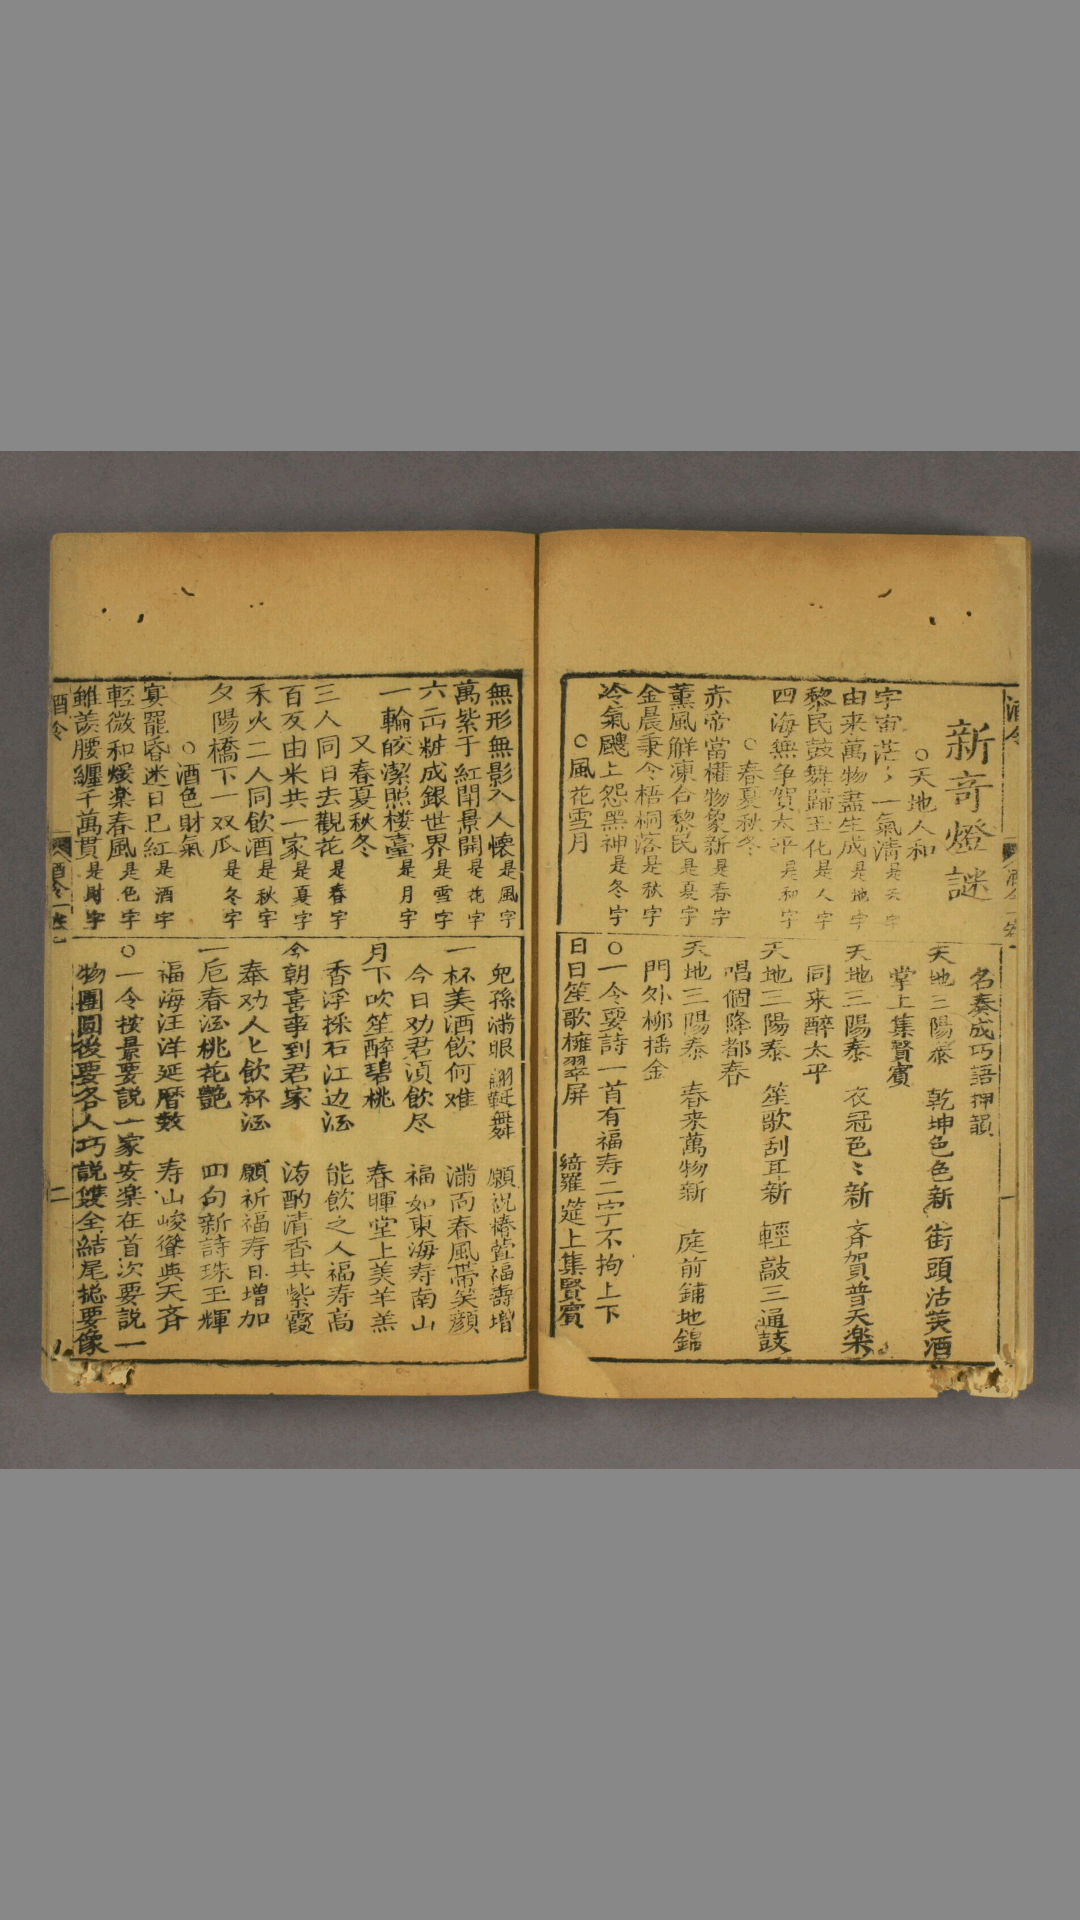 新奇燈謎
○天地人和
宇宙茫〻一氣清是天字
由来萬物盡生成是地字
黎民鼓舞歸王化是人字
四海無争賀太平是和字
○春夏秋冬
赤帝當權物象新是春字
薰風解凍合黎民是夏字
金晨秉令梧桐落是秋字
冷氣颼上怨黑神是冬字
○風花雪月
無形無影入人懷是風字
萬紫于紅閗景開是花字
六出粧成銀世界是雪字
一輪皎潔照楼臺是月字
又春夏秋冬
三人同日去觀花是春字
百友由米共一家是夏字
禾火二人同飲酒是秋字
夕陽橋下一双瓜是冬字
○酒色財氣
宴罷昏迷日已紅是酒字
輕微和煖楽春風是色字
雖羨腰纏千萬貫是財字
名奏成巧語押韻
天地三陽泰 乾坤色色新 街頭沽美酒
掌上集賢賓
天地三陽泰 衣冠色〻新 斉賀普天楽
同来醉太平
天地三陽泰 笙歌刮耳新 輕敲三通鼓
唱個降都春
天地三陽泰 春来萬物新 庭前鋪地錦
門外柳揺金
○一令要詩一首有福寿二字不拘上下
日日笙歌擁翠屏 綺羅筵上集賢賓
兒孫满眼翩躚舞 願祝椿萱福壽增
一杯美酒飲何难 满面春風帶笑顔
今日劝君湏飲尽 福如東海寿南山
月下吹笙醉碧桃 春暉堂上美羊羔
香浮採石江边 能飲之人福寿高
今朝喜事到君家 酌清香共紫霞
奉劝人匕飲杯 願祈福寿日增加
一卮春桃花艷 四句新詩珠玉輝
福海汪洋延暦数 寿山峻聳與天斉
○一令按景要説一家安楽在首次要説一
物團圓後要各人巧説雙全結尾揔要像
酒令
二